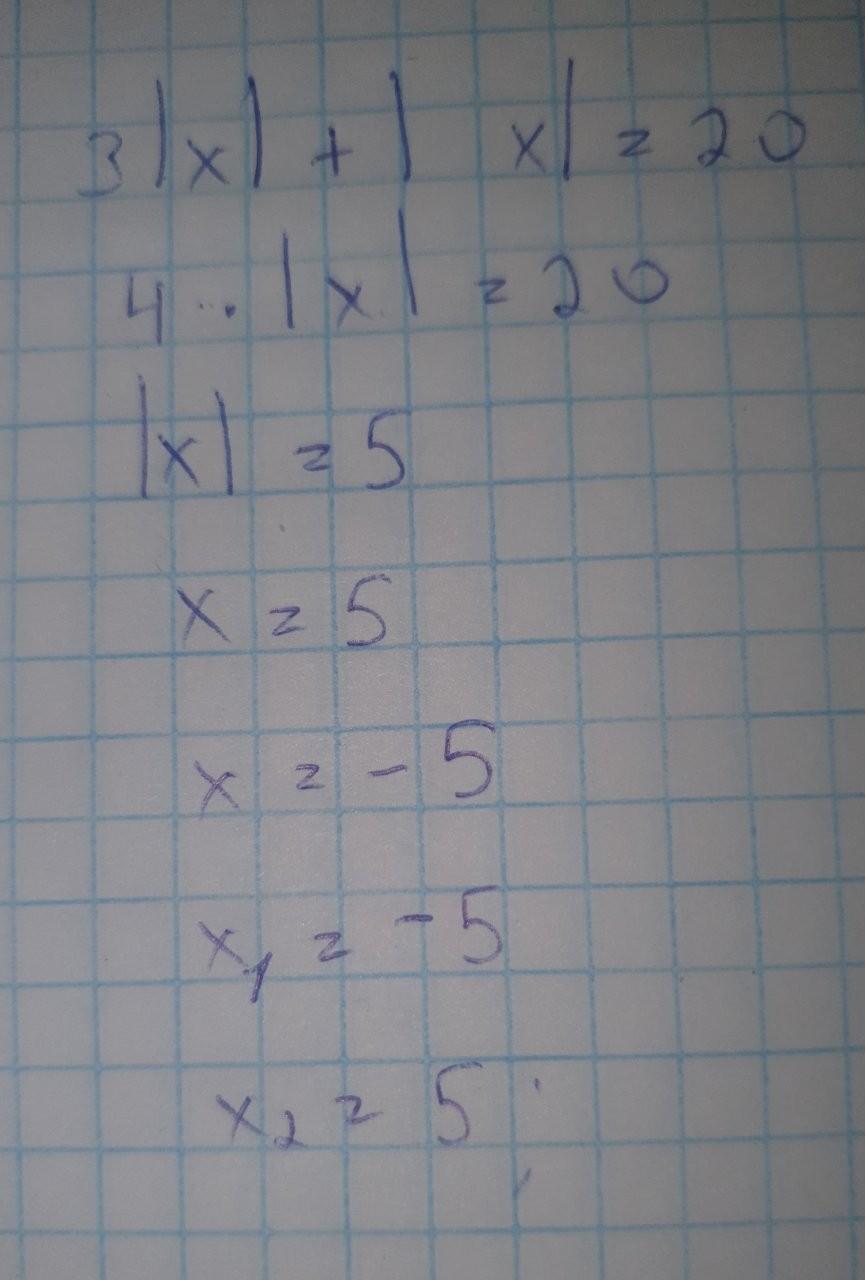 3|x| + | x| = 20
4 · |x| = 20
|x| = 5
x = 5
x = -5
x₁ = -5
x₂ = 5;